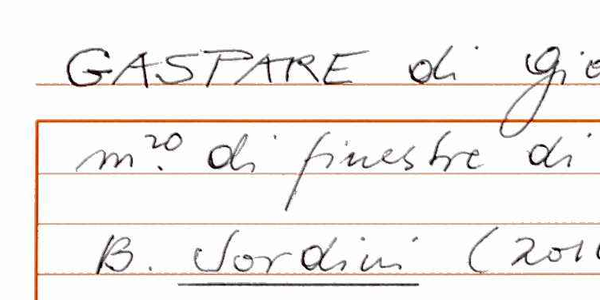 GASPARE di Gio
m.ro di finestre di
B. Sordini (2016